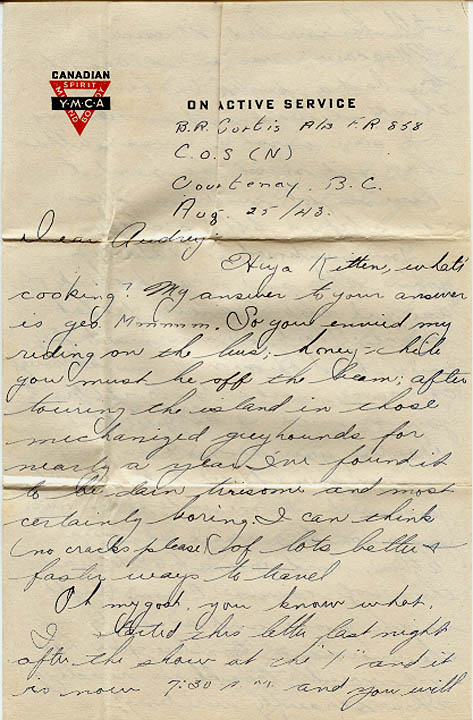 CANADIAN
SPIRIT
Y·M·C·A
MIND BODY
ON ACTIVE SERVICE
B.R. Curtis A/B F.R 858
C.O.S (N)
Courtenay, B.C.
Aug. 25/43.
Dear Audrey;
Hiya Kitten, what's
cooking? My answer to your answer
is yes. Mmmmm. So you envied my
riding on the bus; honey-chile
you must be off the beam; after
touring the island in those
mechanized greyhounds for
nearly a year I've found it
to be darn tiresome and most
certainly boring. I can think
(no cracks please) of lots better &
faster ways to travel
Oh my gosh, you know what,
I started this letter last night
after the show at the "Y" and it
is now 7:30 P.M. and you will